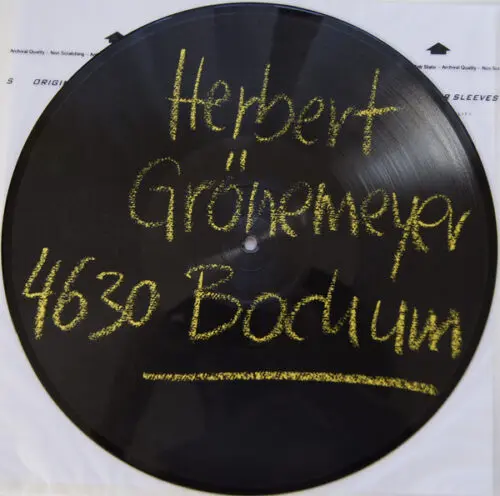 Archival Quality - Non Scratching - A
ORIGIN
Archival Quality - Non S
SLEEVES
Herbert
Grönemeyer
4630 Bochum